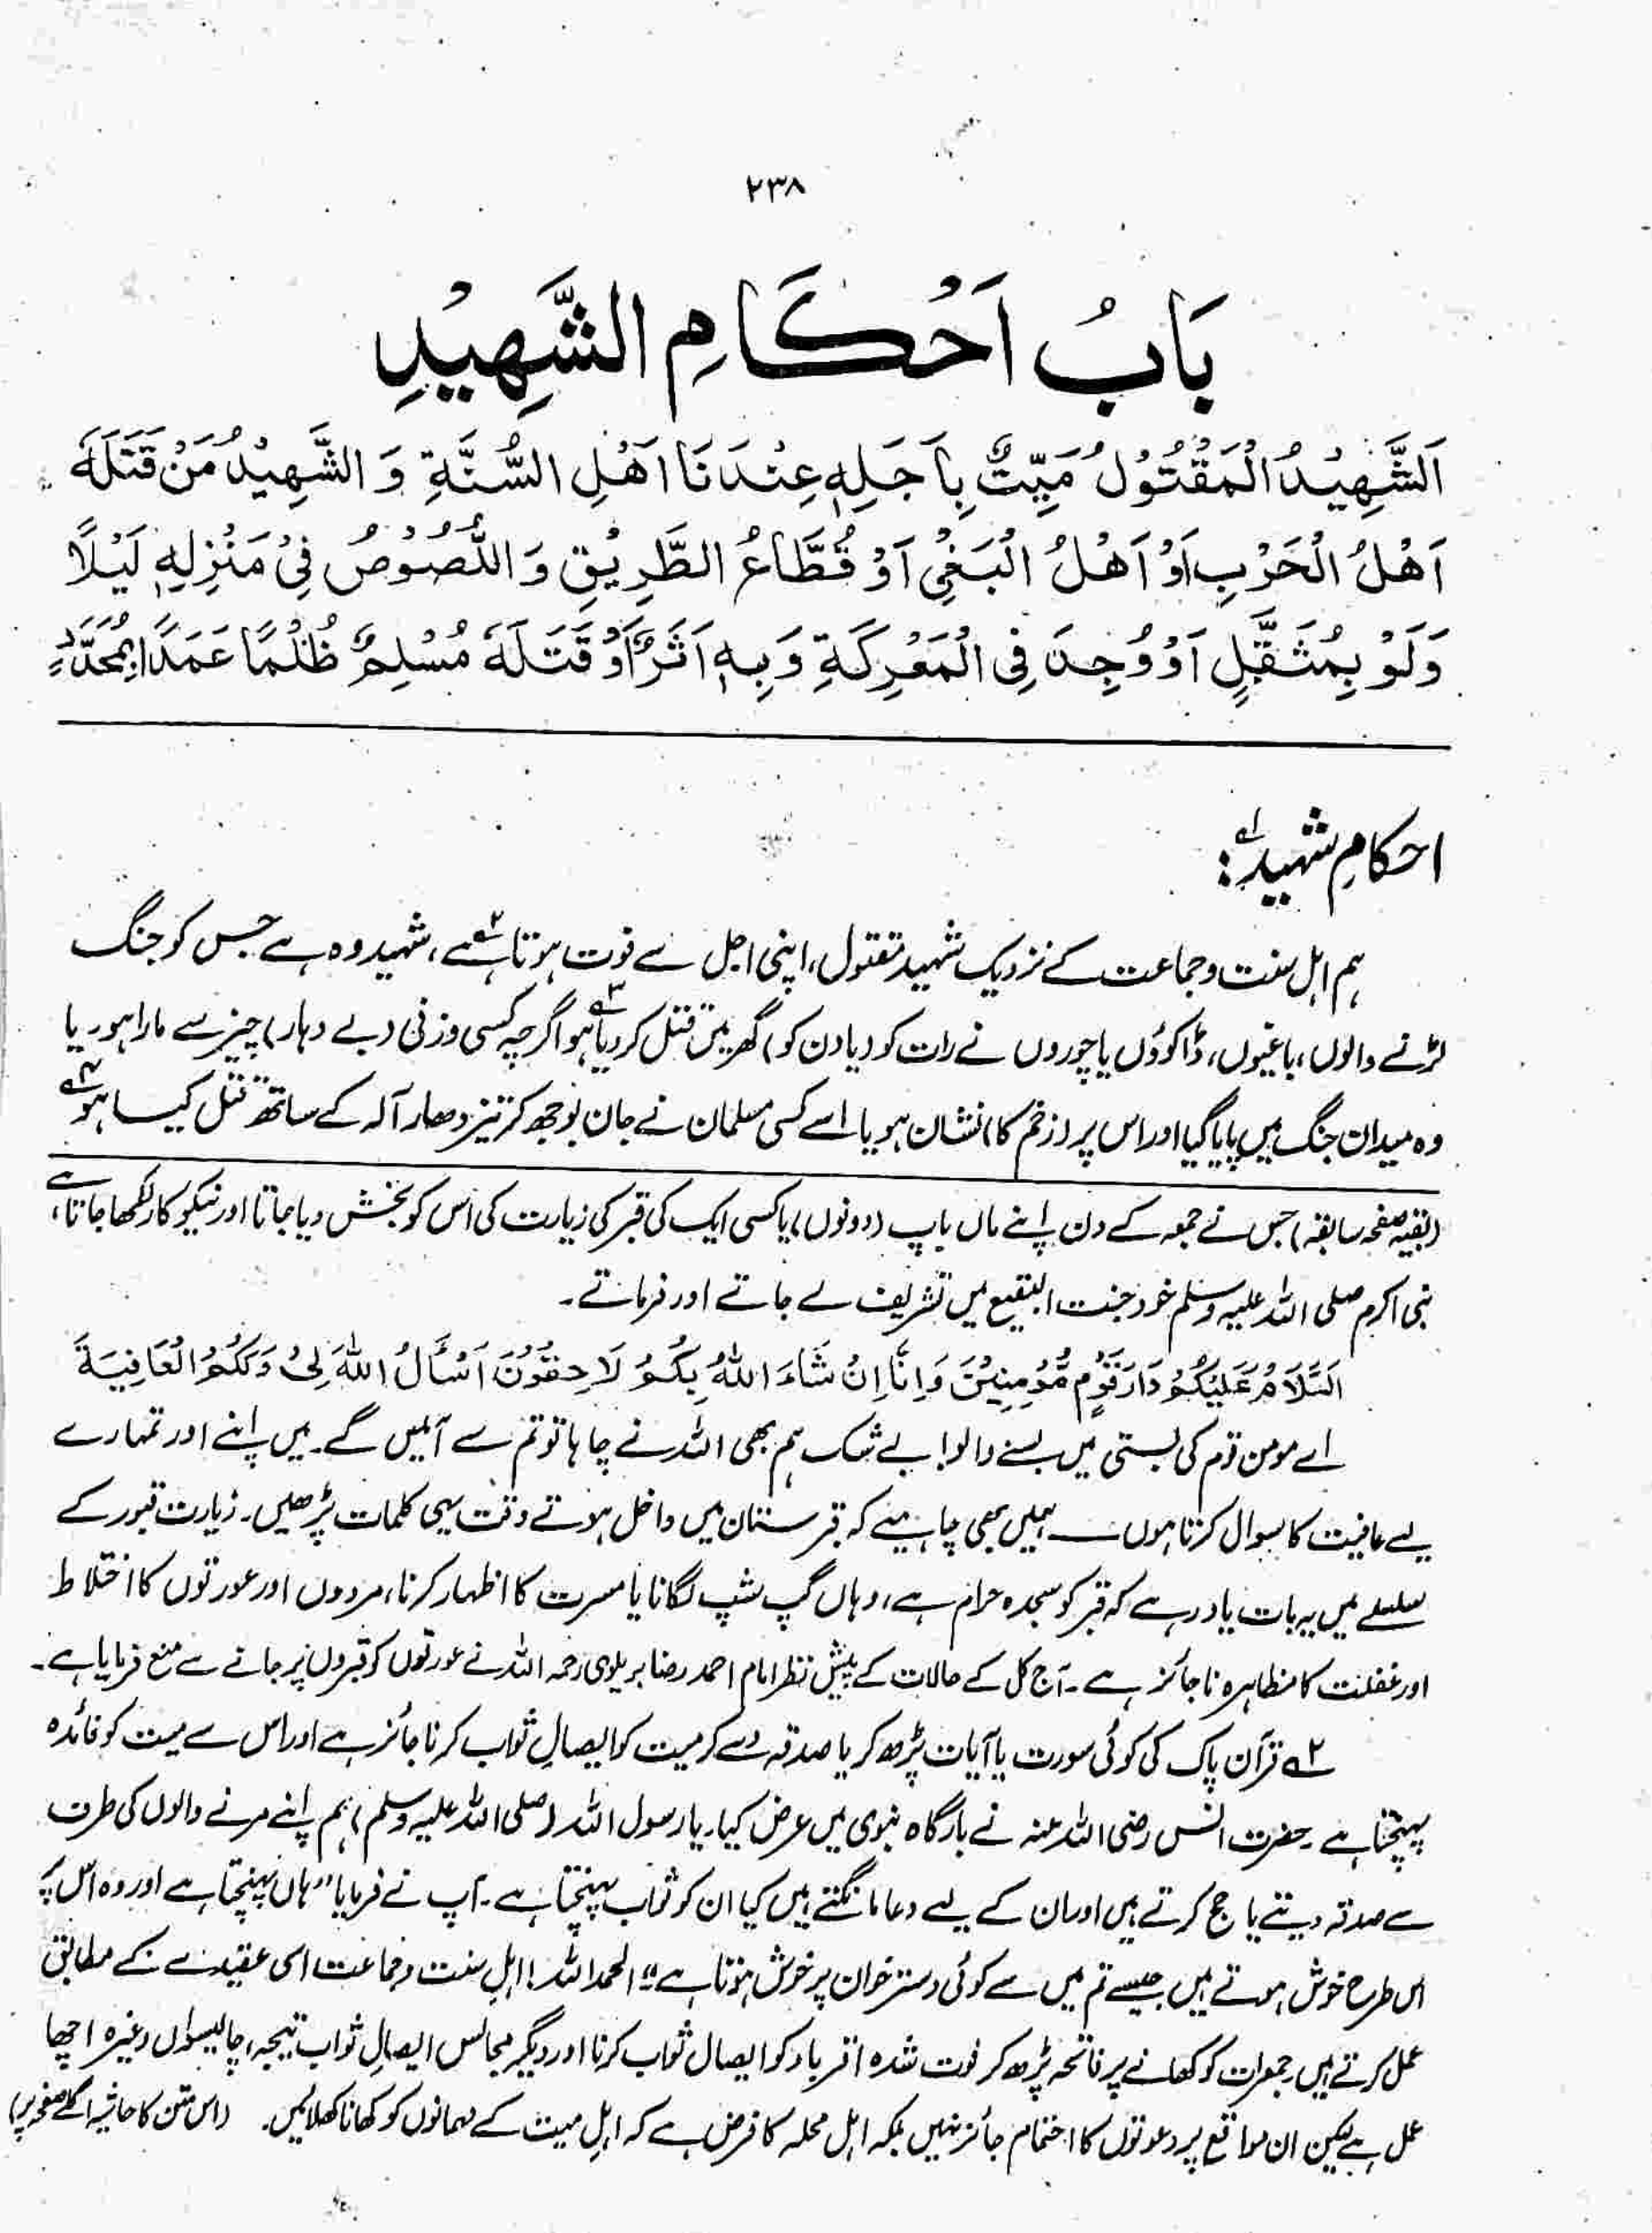 ۲۳۸
بَابُ اَحْكَامِ الشَّهِيْدِ
اَلشَّهِيْدُ الْمَقْتُوْلُ مَيِّتٌ بِاَجَلِهٖ عِنْدَنَا اَهْلِ السُّنَّةِ وَ الشَّهِيْدُ مَنْ قَتَلَهٗ
اَهْلُ الْحَرْبِ اَوْ اَهْلُ الْبَغْيِ اَوْ قُطَّاعُ الطَّرِيْقِ وَ اللُّصُوْصُ فِيْ مَنْزِلِهٖ لَيْلًا
وَلَوْ بِمُثَقَّلٍ اَوْ وُجِدَ فِي الْمَعْرِكَةِ وَبِهٖ اَثَرٌ اَوْ قَتَلَهٗ مُسْلِمٌ ظُلْمًا عَمَدًا بِمُحَدَّدٍ
احکامِ شہید۱؎:
ہم اہل سنت وجماعت کے نزدیک شہید مقتول، اپنی اجل سے فوت ہوتا۲؎ ہے، شہید وہ ہے جس کو جنگ
لڑنے والوں، باغیوں، ڈاکوؤں یا چوروں نے رات کو (یا دن کو) گھر میں قتل کر دیا۳؎ ہو اگرچہ کسی وزنی (بے دہار) چیز سے مارا ہو۔ یا
وہ میدان جنگ میں پایا گیا اور اس پر (زخم کا) نشان ہو یا اسے کسی مسلمان نے جان بوجھ کر تیز دھار آلہ کے ساتھ قتل کیا ہو۴؎
(بقیہ صفحہ سابقہ) جس نے جمعہ کے دن اپنے ماں باپ (دونوں) یا کسی ایک کی قبر کی زیارت کی اس کو بخش دیا جاتا اور نیکو کار لکھا جاتا ہے،
نبی اکرم صلی اللہ علیہ وسلم خود جنت البقیع میں تشریف لے جاتے اور فرماتے۔
اَلسَّلَامُ عَلَيْكُمْ دَارَ قَوْمٍ مُّؤْمِنِيْنَ وَاِنَّا اِنْ شَاءَ اللّٰهُ بِكُمْ لَاحِقُوْنَ اَسْأَلُ اللّٰهَ لِيْ وَلَكُمُ الْعَافِيَةَ
اے مومن قوم کی بستی میں بسنے والو! بے شک ہم بھی اللہ نے چاہا تو تم سے آملیں گے۔ میں اپنے اور تمہارے
لیے عافیت کا سوال کرتا ہوں ۔ ہمیں بھی چاہیئے کہ قبرستان میں داخل ہوتے وقت یہی کلمات پڑھیں۔ زیارت قبور کے
سلسلے میں یہ بات یاد رہے کہ قبر کو سجدہ حرام ہے، وہاں گپ شپ لگانا یا مسرت کا اظہار کرنا، مردوں اور عورتوں کا اختلاط
اور غفلت کا مظاہرہ ناجائز ہے۔ آج کل کے حالات کے پیش نظر امام احمد رضا بریلوی رحمہ اللہ نے عورتوں کو قبروں پر جانے سے منع فرمایا ہے۔
۲؎ قرآن پاک کی کوئی سورت یا آیات پڑھ کر یا صدقہ دے کر میت کو ایصالِ ثواب کرنا جائز ہے اور اس سے میت کو فائدہ
پہنچتا ہے۔ حضرت انس رضی اللہ عنہ نے بارگاہ نبوی میں عرض کیا۔ یا رسول اللہ (صلی اللہ علیہ وسلم) ہم اپنے مرنے والوں کی طرف
سے صدقہ دیتے یا حج کرتے ہیں اور ان کے لیے دعا مانگتے ہیں کیا ان کو ثواب پہنچتا ہے۔ آپ نے فرمایا "ہاں پہنچتا ہے اور وہ اس پر
اس طرح خوش ہوتے ہیں جیسے تم میں سے کوئی دسترخوان پر خوش ہوتا ہے"۔ الحمد اللہ! اہلِ سنت وجماعت اسی عقیدے کے مطابق
عمل کرتے ہیں۔ جمعرات کو کھانے پر فاتحہ پڑھ کر فوت شدہ اقرباء کو ایصال ثواب کرنا اور دیگر مجالس ایصالِ ثواب تیجہ، چالیسواں وغیرہ اچھا
عمل ہے لیکن ان مواقع پر دعوتوں کا اختمام جائز نہیں بلکہ اہل محلہ کا فرض ہے کہ اہلِ میت کے مہمانوں کو کھانا کھلائیں۔ (اس متن کا حاشیہ اگلے صفحہ پر)